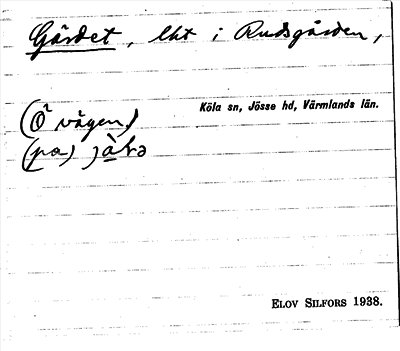 Gärdet, lht i Rudsgården,
Köla sn, Jösse hd, Värmlands län.
(Ö vägen)
(pa)
ELOV SILFORS 1938.